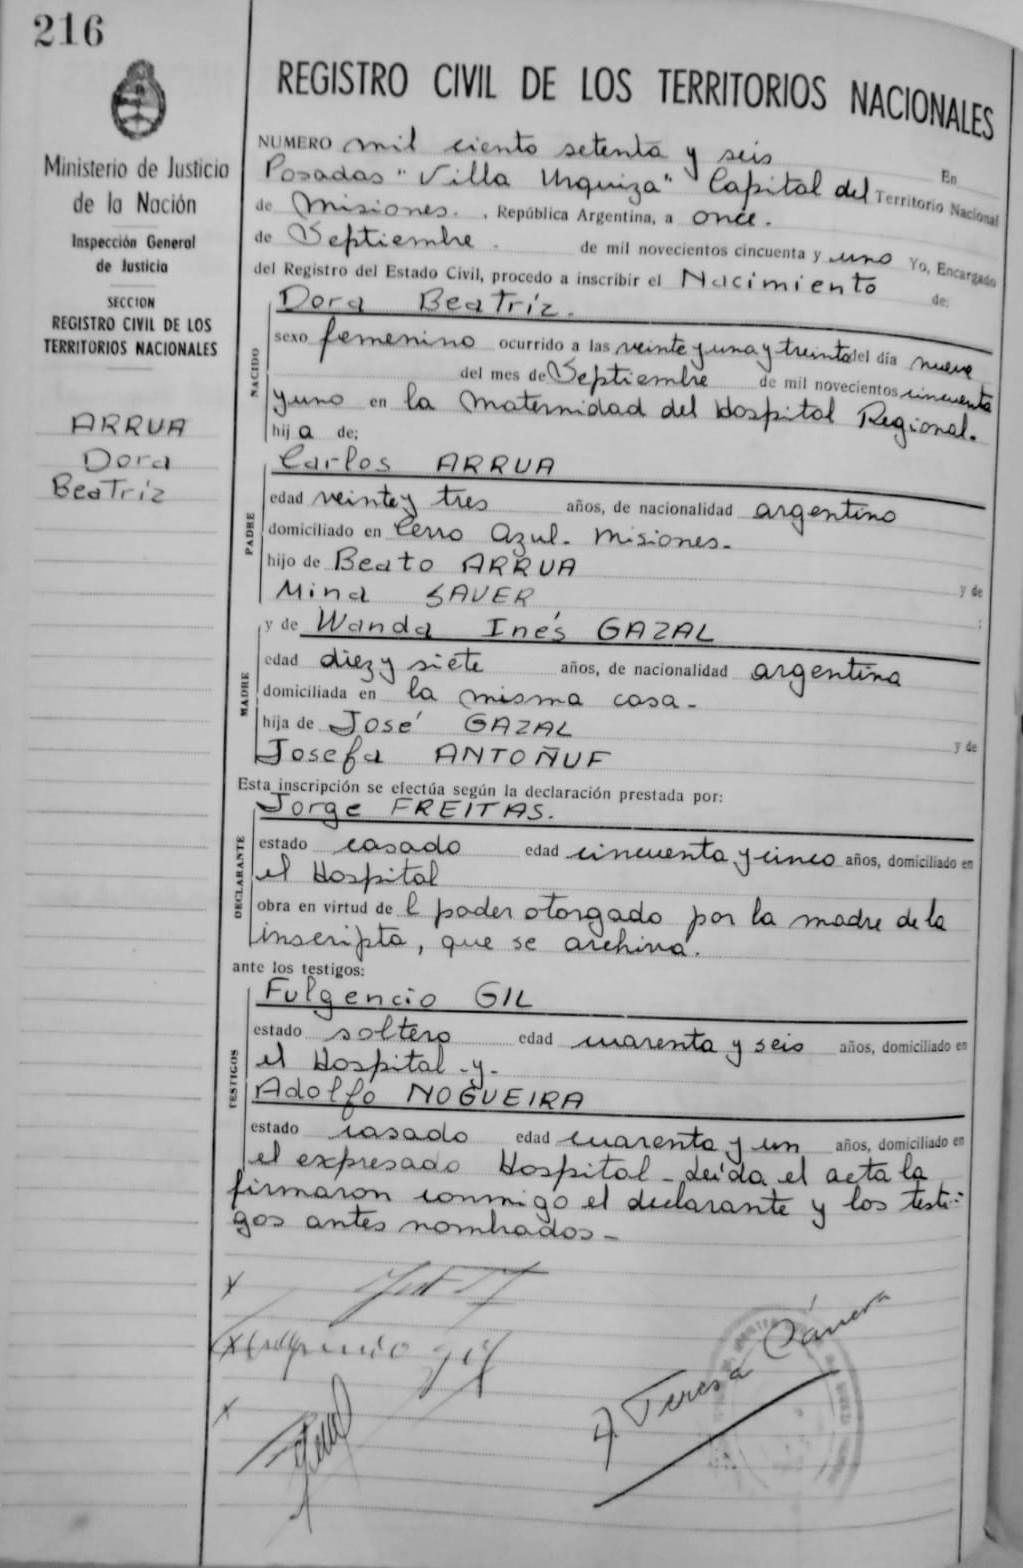 216
Ministerio de Justicia
de la Nación
Inspección General
de Justicia
SECCION
REGISTRO CIVIL DE LOS
TERRITORIOS NACIONALES
ARRUA
Dora
Beatríz
REGISTRO CIVIL DE LOS TERRITORIOS NACIONALES
NUMERO mil ciento setenta y seis En
Posadas "Villa Urquiza" Capital del Territorio Nacional
de Misiones. , República Argentina, a once.
de Septiembre. de mil novecientos cincuenta y uno Yo, Encargado
del Registro del Estado Civil, procedo a inscribir el Nacimiento de:
NACIDO
Dora Beatríz.
sexo femenino ocurrido a las veinte y una y treinta del día nueve
del mes de Septiembre de mil novecientos cincuenta
y uno en la Maternidad del Hospital Regional.
hija de;
PADRE
Carlos ARRUA
edad veinte y tres años, de nacionalidad argentino
domiciliado en Cerro Azul. Misiones.
hijo de Beato ARRUA y de
Mina SAUER ;
MADRE
y de Wanda Inés GAZAL
edad diez y siete años, de nacionalidad argentina
domiciliada en la misma casa.
hija de José GAZAL y de
Josefa ANTOÑUF
Esta inscripción se efectúa según la declaración prestada por:
DECLARANTE
Jorge FREITAS.
estado casado edad cincuenta y cinco años, domiciliado en
el Hospital
obra en virtud del poder otorgado por la madre de la
inscripta, que se archiva.
ante los testigos:
TESTIGOS
Fulgencio GIL
estado soltero edad cuarenta y seis años, domiciliado en
el Hospital -y-
Adolfo NOGUEIRA
estado casado edad cuarenta y un años, domiciliado en
el expresado Hospital - Leída el acta la
firmaron conmigo el declarante y los testi-
gos antes nombrados -
x
x Fulgencio gil
x
A Teresa